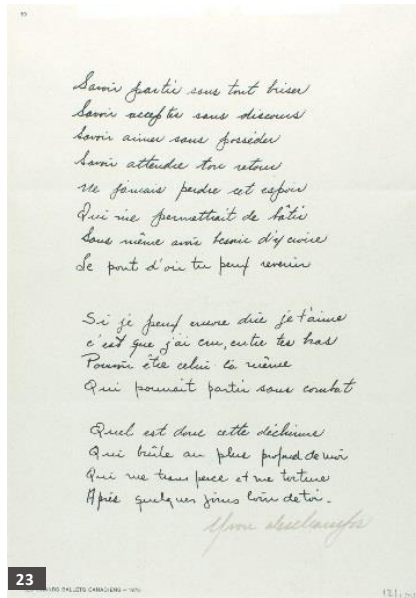 Savoir partir sans tout briser
Savoir accepter sans discours
Savoir aimer sans posséder
Savoir attendre ton retour
Ne jamais perdre cet espoir
Qui me permettrait de bâtir
Sans même avoir besoin d'y croire
Le pont d'où tu peux revenir
Si je peux encore dire je t'aime
c'est que j'ai cru, entre tes bras
Pouvoir être celui là même
Qui pourrait partir sans combat
Quel est donc cette déchirure
Qui brûle au plus profond de moi
Qui me transperce et me torture
Après quelques jours loin de toi.
Yvon Deschamps
23
BALLETS CANADIENS — 1976